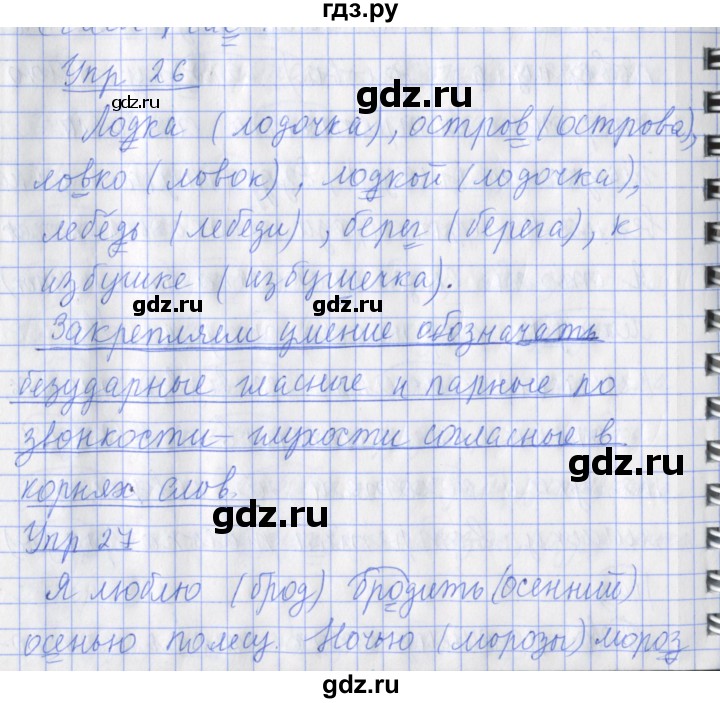 гдз.ру
Упр 26
gdz.ru
gdz.ru
Лодка (лодочка), остров (острова),
ловко (ловок), лодкой (лодочка),
лебедь (лебеди), берег (берега), к
избушке (избушечка).
gdz.ru gdz.ru
Закрепляем умение обозначать
безударные гласные и парные по
звонкости-глухости согласные в
корнях слов.
gdz.ru
gdz.ru
Упр 27
Я люблю (брод) бродить (осенний)
осенью по лесу. Ночью (морозы) мороз
gdz.ru